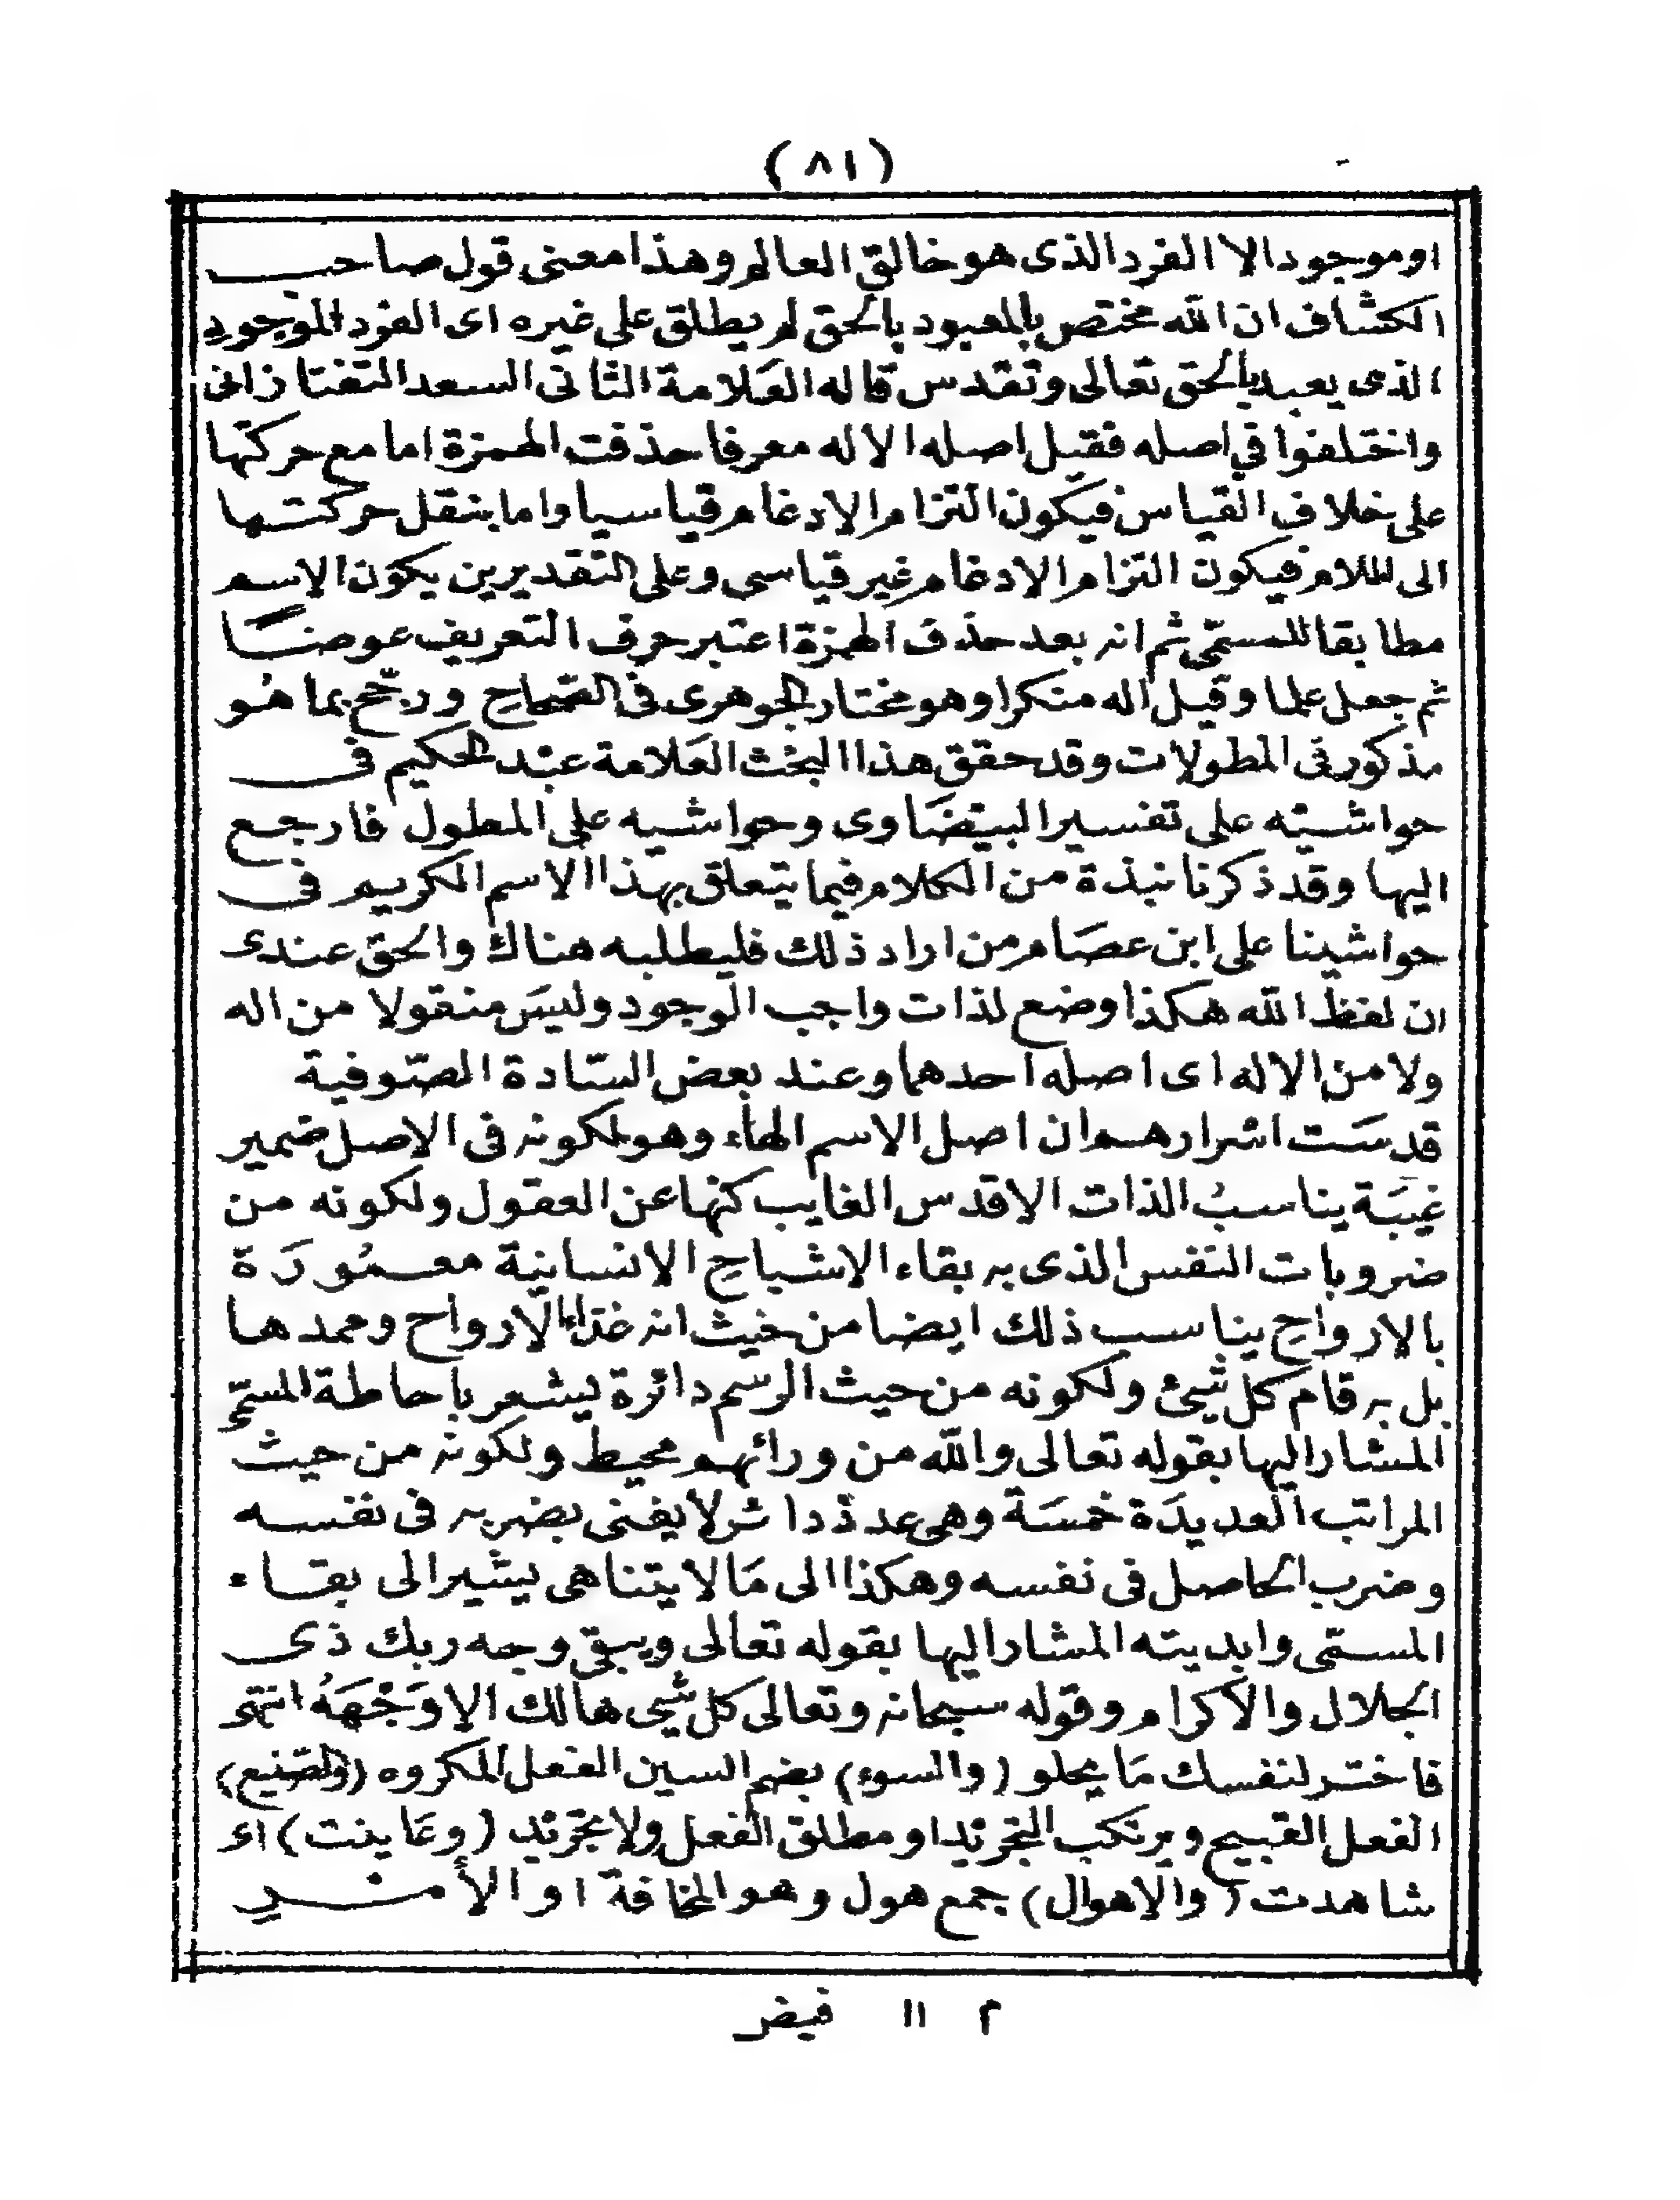 (٨١)
او موجود الا الفرد الذى هو خالق العالم وهذا معنى قول صاحب
الكشاف ان الله مختص بالمعبود بالحق لم يطلق على غيره اى الفرد الموجود
الذى يعبد بالحق تعالى وتقدس قاله العلامة الثانى السعد التفتازانى
واختلفوا فى اصله فقيل اصله الاله معرفا حذفت الهمزة اما مع حركتها
على خلاف القياس فيكون التزام الادغام قياسيا واما بنقل حركتها
الى للام فيكون التزام الادغام غير قياسى وعلى التقديرين يكون الاسم
مطابقا للمسمّى ثم انه بعد حذف الهمزة اعتبر حرف التعريف عوضًا
ثم جعل علما وقيل اله منكرا وهو مختار الجوهرى فى الصّحاح ورجّح بما هُو
مذكور فى المطولات وقد حقق هذا البحث العَلامة عبْد الحكيم فى
حواشيته على تفسير البيضَاوى وحواشيه على المطول فارجع
اليها وقد ذكرنا نبذة من الكلام فيما يتعلق بهذا الاسم الكريم فى
حواشينا على ابن عصَام من اراد ذلك فليطلبه هناك والحق عندى
ان لفظ الله هكذا وضع لذات واجب الوجود وليسَ منقولا من اله
ولا من الاله اى اصله احدهما وعند بعض السّادة الصّوفية
قدسَت اسْرارهم ان اصل الاسم الهاء وهو لكونه فى الاصل ضمير
غيبَة يناسبُ الذات الاقدس الغايب كنهها عن العقول ولكونه من
ضروبات النفس الذى به بقاء الاشباح الانسانية معمُورَة
بالارواح يناسب ذلك ايضا من حيث انه غذاء الارواح وممدها
بل به قام كل شيئ ولكونه من حيث الرسم دائرة يشعر باحاطة المسمّى
المشار اليها بقوله تعالى والله من ورائهم محيط ولكونه من حيث
المراتب العديدَة خمسَة وهى عدد دائر لا يفنى بضربه فى نفسه
وضرب الحاصل فى نفسه وهكذا الى مَا لا يتناهى يشير الى بقاء
المسمّى وابديته المشار اليها بقوله تعالى ويبقى وجه ربك ذى
الجلال والاكرام وقوله سبحانه وتعالى كل شيئ هالك الا وَجْهَهُ انتهى
فاختر لنفسك مَا يحلو (والسوء) بضم السين الفعل المكروه (والصّنيع)
الفعل القبيح ويرتكب التجريد او مطلق الفعل ولا تجريد (وعَاينت) اى
شاهدت (والاهوال) جمع هول وهو المخافة او الأمر
م ١١ فيض